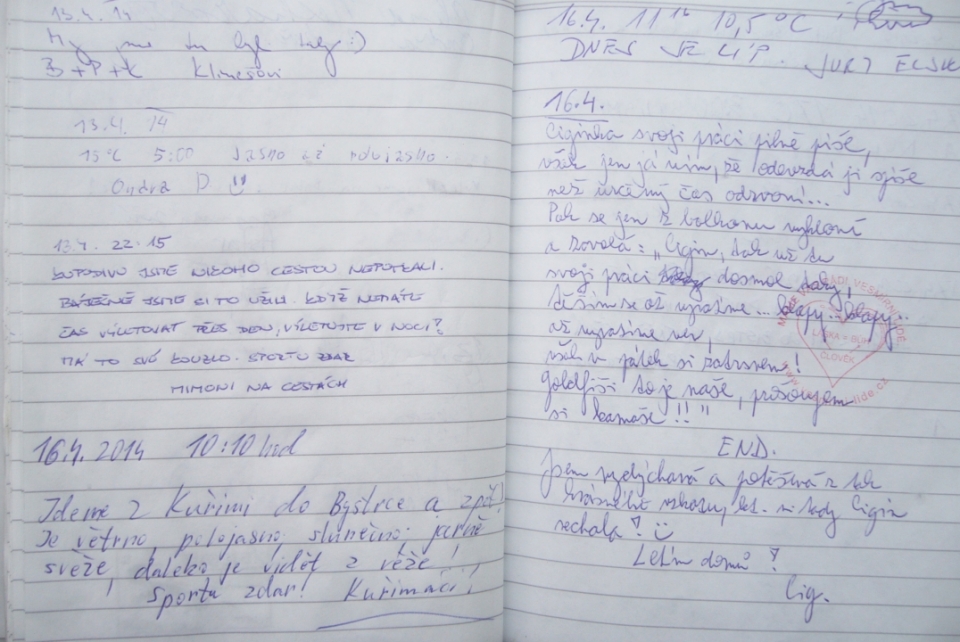 13.4. 14
My jsme tu byli taky :)
B+P+K Klimešovi
13.4. 14
15°C 5:00 Jasno až
Ondra D
13.4. 22:15
KUPODIVU JSME NIKOHO CESTOU NEPOTKALI.
BÁJEČNĚ JSME SI TO UŽILI. KDYŽ NEMÁTE
ČAS VÝLETOVAT PŘES DEN, VÝLETUJTE V NOCI?
MÁ TO SVÉ KOUZLO. SPORTU ZDAR
MIMONI NA CESTÁCH
16.4. 2014 10:10 hod
Jdeme z Kuřimi do Bystrce a zpět!
Je větrno, polojasno, slunečno, jarně
svěže, daleko je vidět z věže,
Sportu zdar! Kuřimáci!
16.4. 11 10,5°C
DNES JE LÍP.
16.4.
Ciginka svoji práci pilně píše,
však jen já vím, že odevzdá ji spíše
než určený čas odzvoní...
Pak se jen z balkonu vykloní
a zavolá: "Cigin, tak už tu
svoji práci dosmol taky,
těším se až vyrazíme...
už vyrazíme ven,
však v pátek si zatrsem!
Goldfiši to je naše,
si kamaše!!!"
END.
Jsem vydýchaná a potěšená z tak
krásného vzkazu, kt. si tady Cigin
nechala! :)
Letím domů!
Cig.
ČLOVĚK